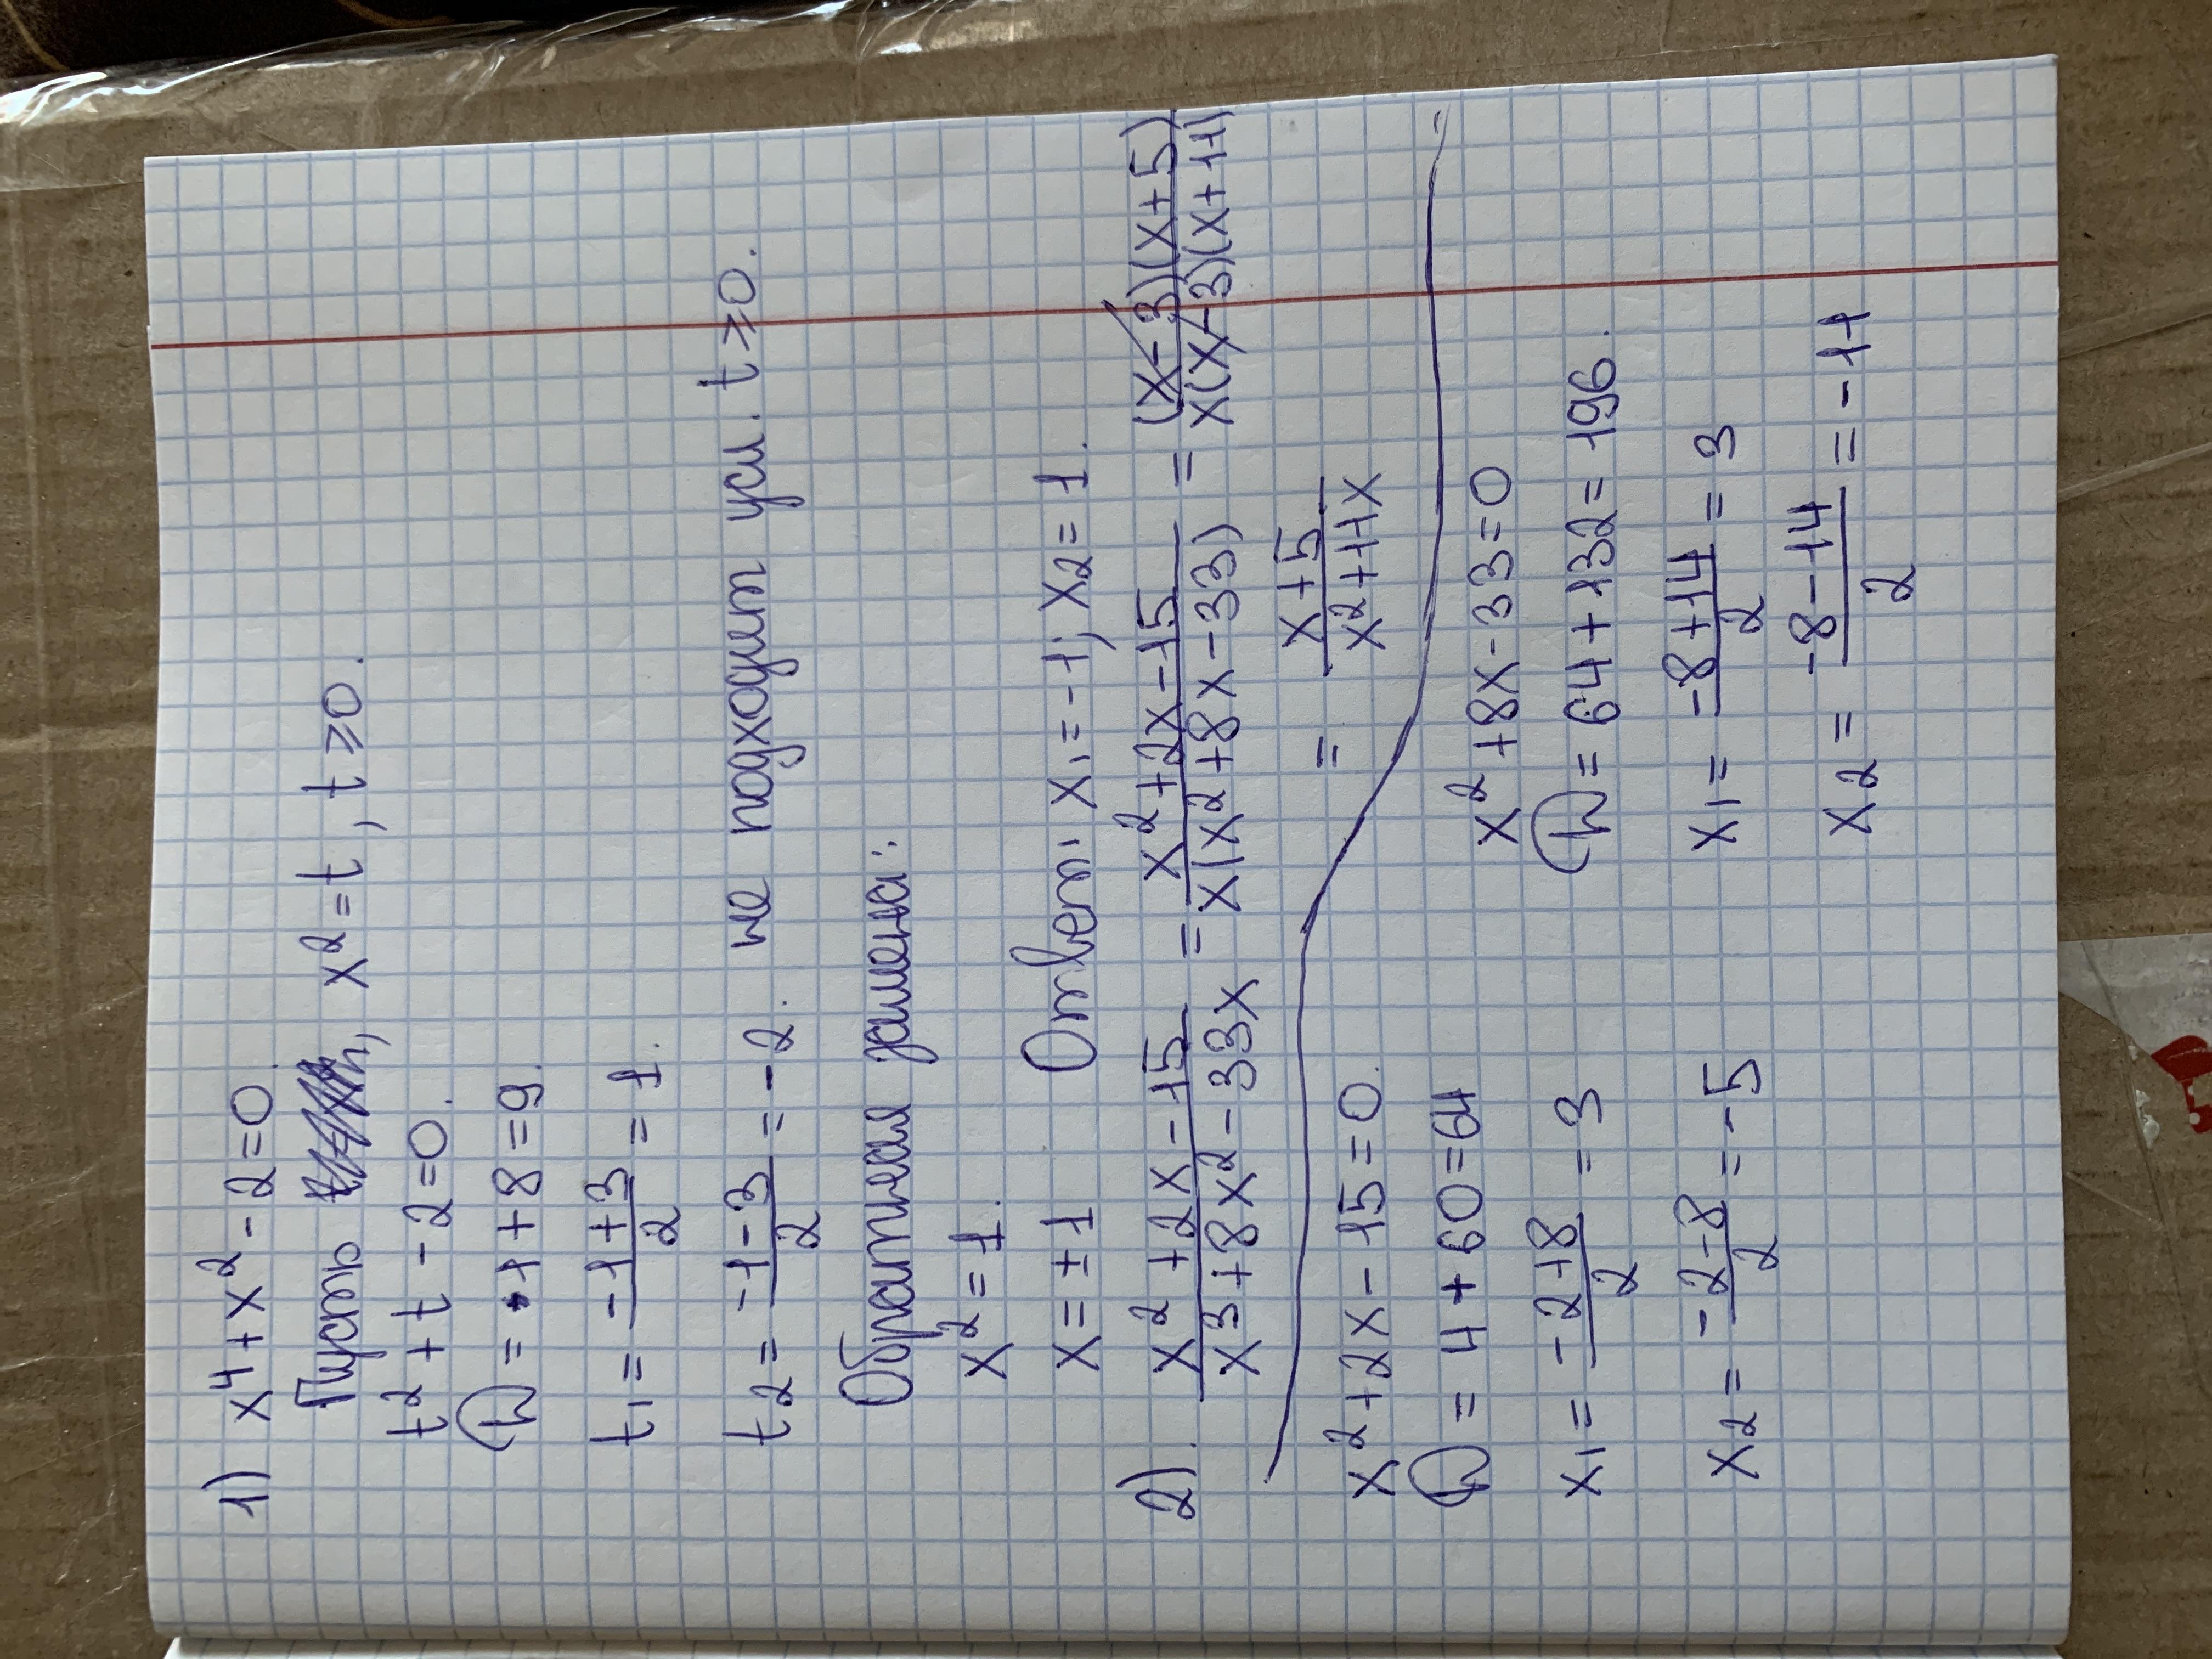 1) x⁴+x²-2=0.
Пусть x²=t, t⩾0.
t²+t-2=0.
D=1+8=9.
t₁= (-1+3)/2 =1.
t₂= (-1-3)/2 =-2. не подходит усл. t⩾0.
Обратная замена:
x²=1.
x=±1 Ответ: x₁=-1; x₂=1.
2). (x²+2x-15)/(x³+8x²-33x) = (x²+2x-15)/(x(x²+8x-33)) = ((x-3)(x+5))/(x(x-3)(x+11))
= (x+5)/(x²+11x)
x²+2x-15=0.
D=4+60=64
x₁= (-2+8)/2 =3
x₂= (-2-8)/2 =-5
x²+8x-33=0
D=64+132=196.
x₁= (-8+14)/2 =3
x₂= (-8-14)/2 =-11